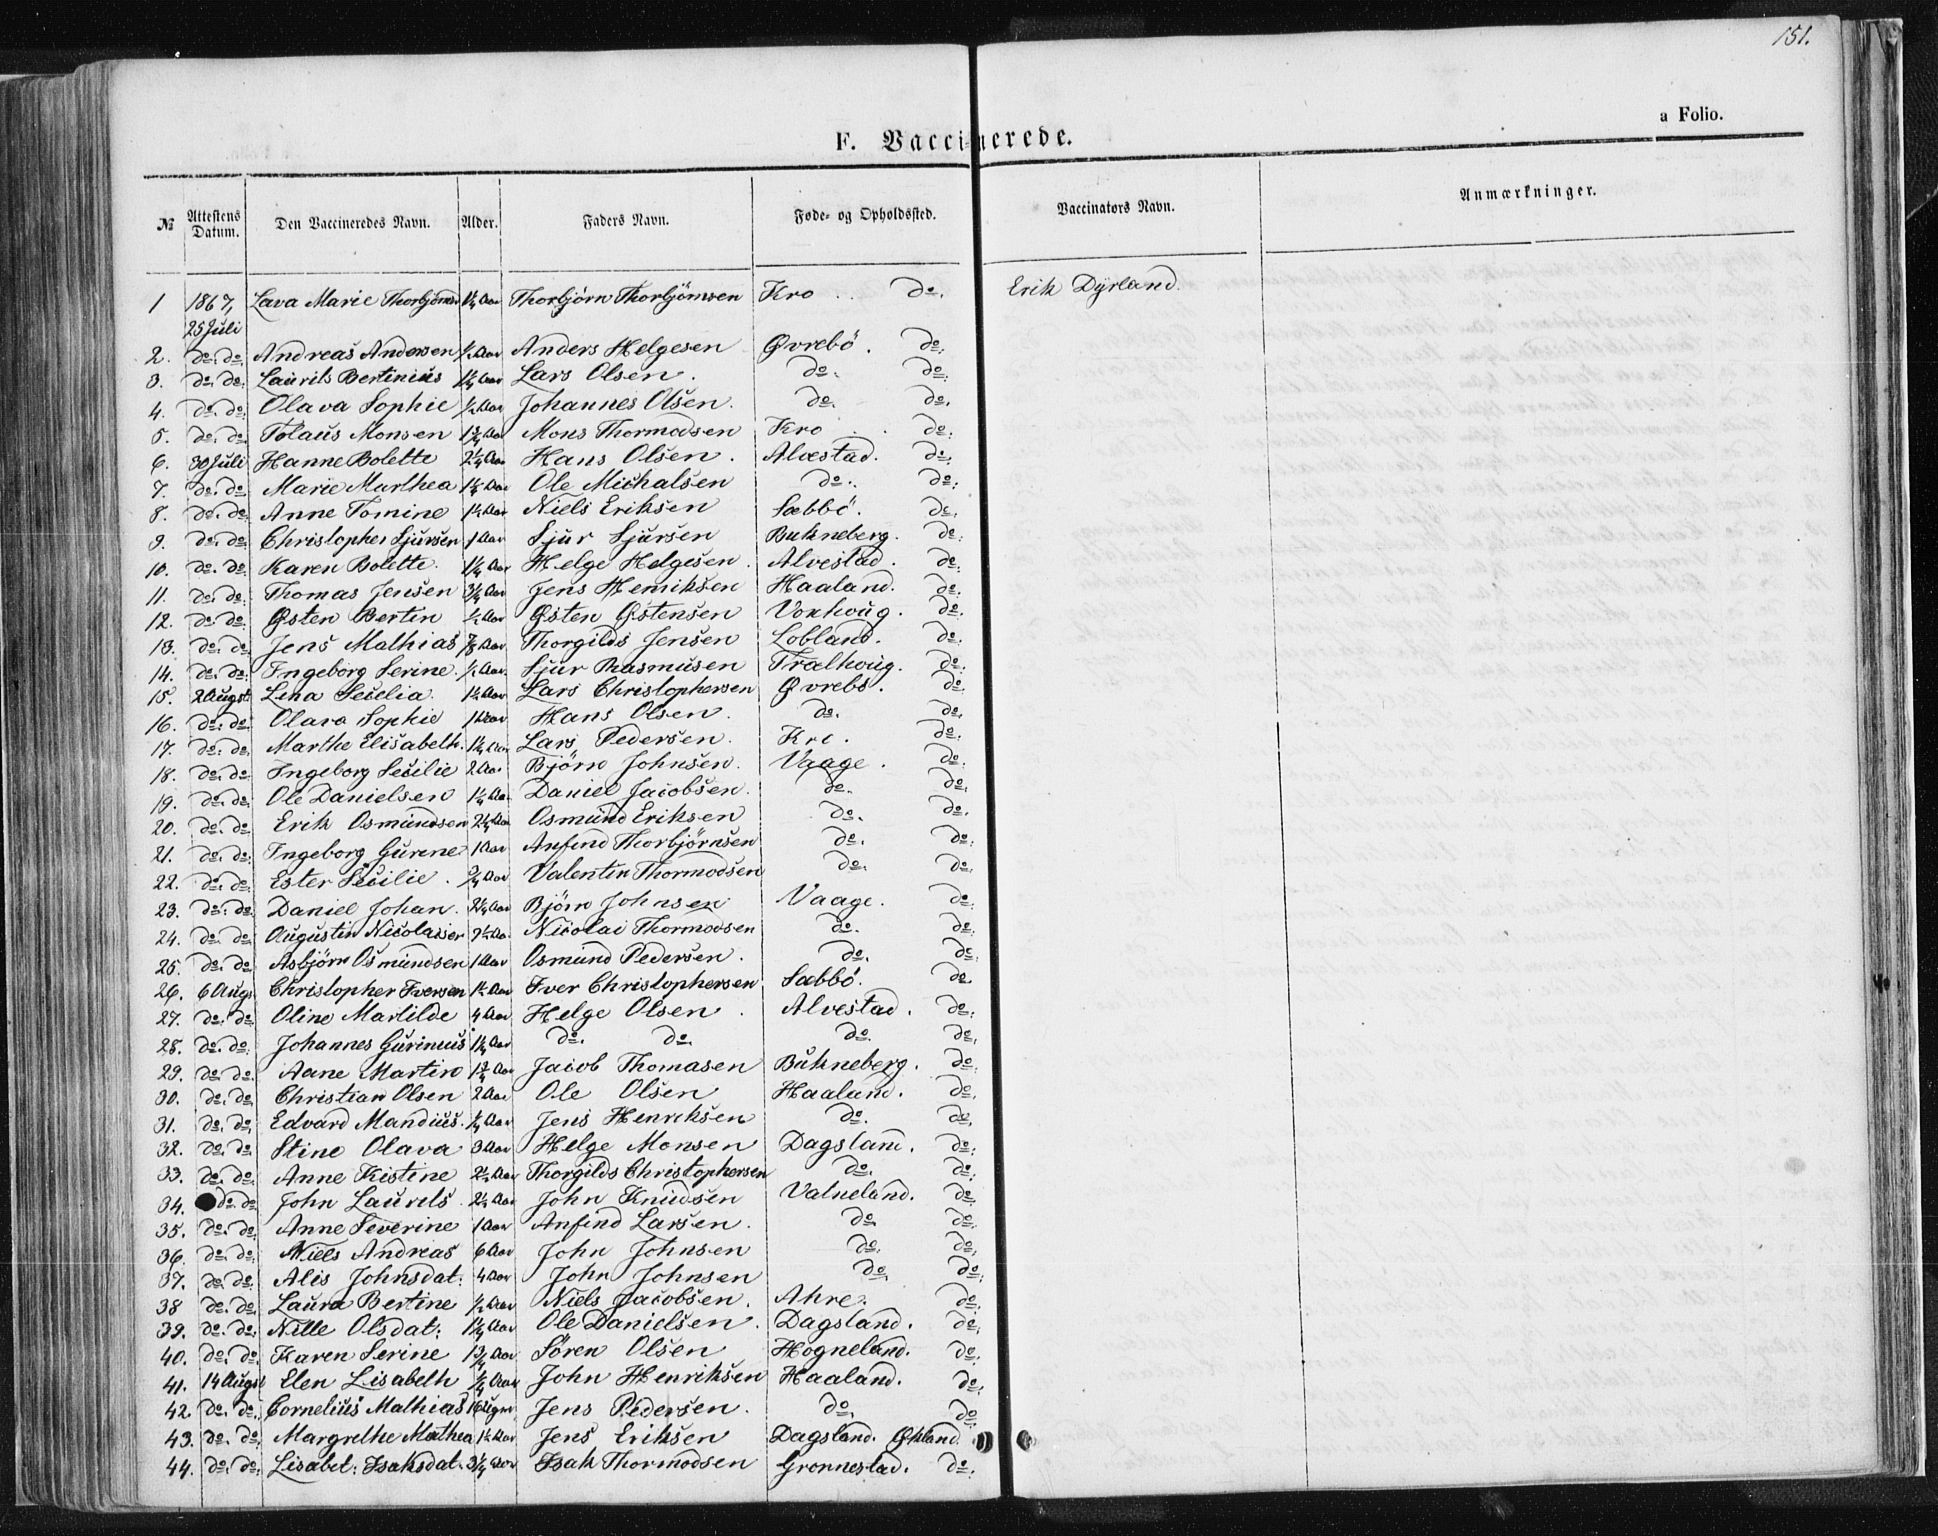 151.
a Folio.
F. Vaccinerede.
№ Attestens Datum. Den Vaccineredes Navn. Alder. Faders Navn. Føde- og Opholdssted. Vaccinators Navn. Anmærkninger.
1 1867, 25 Juli Lava Marie Thorbjörnsen Aar Thorbjörn Thorbjörnsen Kro . . do. Erik Dyrland.
2. do: do: Andreas Andersen Aar Anders Helgesen Øvrebö . do:
3. do: do: Laurits Bertinius Aar Lars Olsen . do. do:
4. do: do: Olava Sophie ½ Aar Johannes Olsen . do. do.
5. do: do: Tolaus Monsen 1¾ Aar Mons Thormodsen Kro . . do:
6. 30 Juli Hanne Bolette 2¼ Aar Hans Olsen . Alvestad. do:
7. do: do: Marie Marthea Aar Ole Michalsen do:. do:
8. do: do: Anne Tomine Aar Niels Eriksen Sæbbö. do.
9. do: do: Christopher Sjursen 1 Aar Sjur Sjursen Bukneberg. do:
10. do: do: Karen Bolette. 1¼ Aar Helge Helgesen . Alvestad . do:
11. do: do: Thomas Jensen Aar Jens Henriksen Haaland. do:
12. do: do: Østen Bertin ½ Aar Østen Østensen Voxhoug. do.
13. do: do: Jens Mathias 7/8 Aar Thorgilds Jensen Lobland. do:
14. do: do: Ingeborg Serine. ½ Aar. Sjur Rasmusen Træthoug. do:
15. 2 Augst Lina Secelia. Aar Lars Christophersen Øvrebö. do.
16. do: do: Olava Sophie Aar Hans Olsen. do. do.
17. do: do: Marthe Elisabeth. Aar Lars Pedersen. Kro. do.
18. do: do: Ingeborg Secilie 2 Aar Björn Johnsen. Vaage . do.
19. do: do: Ole Danielsen Aar Daniel Jacobsen. do. do.
20. do: do: Erik Osmundsen 2¼ Aar Osmund Eriksen do. do.
21. do: do: Ingeborg Gurene 1 Aar Anfind Thorbjörnsen do. do:
22. do: do: Ester Secilie . ¾ Aar Valentin Thormodsen do. do.
23. do: do: Daniel Johan. 2¼ Aar Björn Johnsen Vaage. do:
24. do: do: Augustin Nicolaisen Aar Nicolai Thormodsen do. do:
25. do: do: Asbjörn Osmundsen 1 Aar Osmund Pedersen . do: do:
26. 6 Augst Christopher Iversen Aar Iver Christophersen Sæbbö. do.
27. do: do: Oline Martilde 4 Aar Helge Olsen . Alvestad . do:
28. do: do: Johannes Gurinius 1¼ Aar do. do. do. do.
29. do: do: Aane Martin 1¾ Aar Jacob Thomasen Bukneberg . do:
30. do: do: Christian Olsen 2 Aar Ole Olsen Haaland. do.
31. do: do: Edvard Mandius. ¼ Aar Jens Henriksen do. do.
32. do: do: Stine Olava 3 Aar Helge Monsen Dagsland . do:
33. do: do: Anne Kistine Aar Thorgilds Christophersen do. do:
34. do: do: John Laurits. Aar John Knudsen Valneland. do:
35. do: do: Anne Severine 1 Aar Anfind Larsen . do. do.
36. do: do: Niels Andreas 6 Aar John Johnsen do. do:
37. do: do: Alis Johnsdat: 4 Aar John Johnsen do. do:
38 do: do: Laura Bertine ½ Aar Niels Jacobsen . Ahre. do:
39. do: do: Nille Olsdat: 1¼ Aar Ole Danielsen . Dagsland. do:
40. do: do: Karen Serine 1¾ Aar Sören Olsen Hogneland. do:
41. 14 Augst Elen Lisabeth ¼ Aar John Henriksen Haaland. do:
42. do: do: Cornelius Mathias Jens Pedersen . do. do.
43. do: do: Margrethe Mathea Aar Jens Eriksen Dagsland. Økland.
44. do: do: Lisabet: Isaksdat: 3¼ Aar Isak Thormodsen Gronnestad. do: